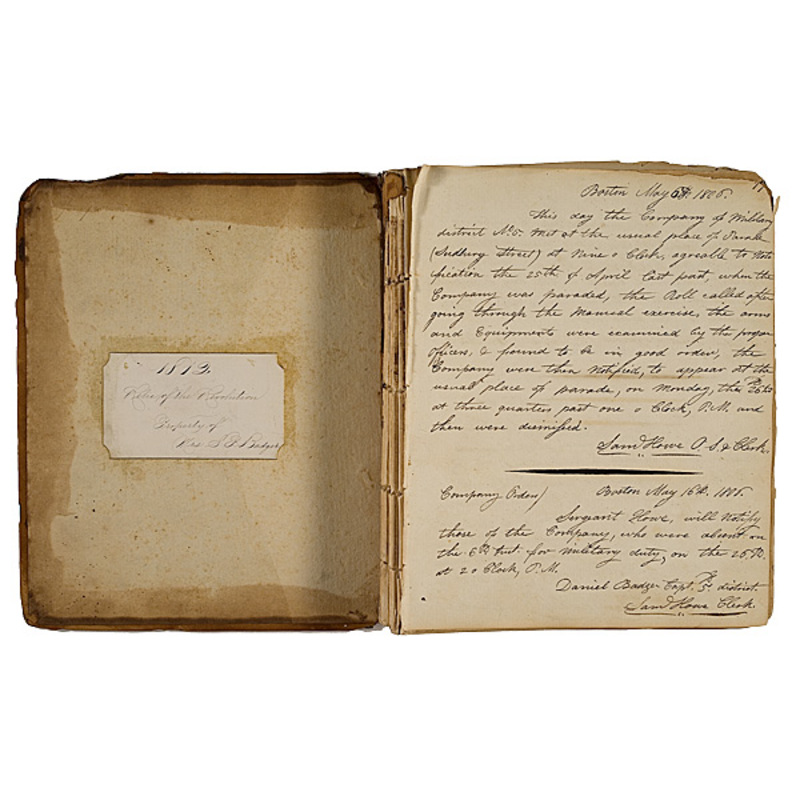 1812
Relic of the Revolution
Property of
Mrs S B Badger
Boston May 6th. 1806.
This day the Company of Military
district No. 5. met at the usual place of Parade
(Sudbury Street) at Nine o Clock, agreable to Noti
fication the 25th of April last past, when the
Company was paraded, the Roll called after
going through the Manual exercise, the arms
and Equipments were examined by the proper
officers, & found to be in good order, the
Company were then Notified, to appear at the
usual place of parade, on Monday, the 26th
at three quarters past one o Clock, P.M. and
then were dismissed.
Saml Howe O. S. & Clerk.
Company Orders) Boston May 16th. 1806.
Sergeant Howe, will Notify
those of the Company, who were absent on
the 6th for military duty, on the 26th.
at 2 o Clock, P.M.
Daniel Badger Capt. 5th. district.
Saml Howe Clerk.